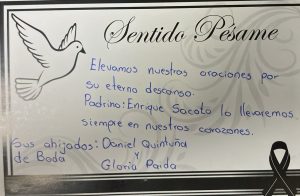 Sentido Pésame
Elevamos nuestras oraciones por
su eterno descanso.
Padrino: Enrique Sacoto lo llevaremos
siempre en nuestros corazones.
Sus ahijados: Daniel Quintuña
de Boda y
Gloria Parda